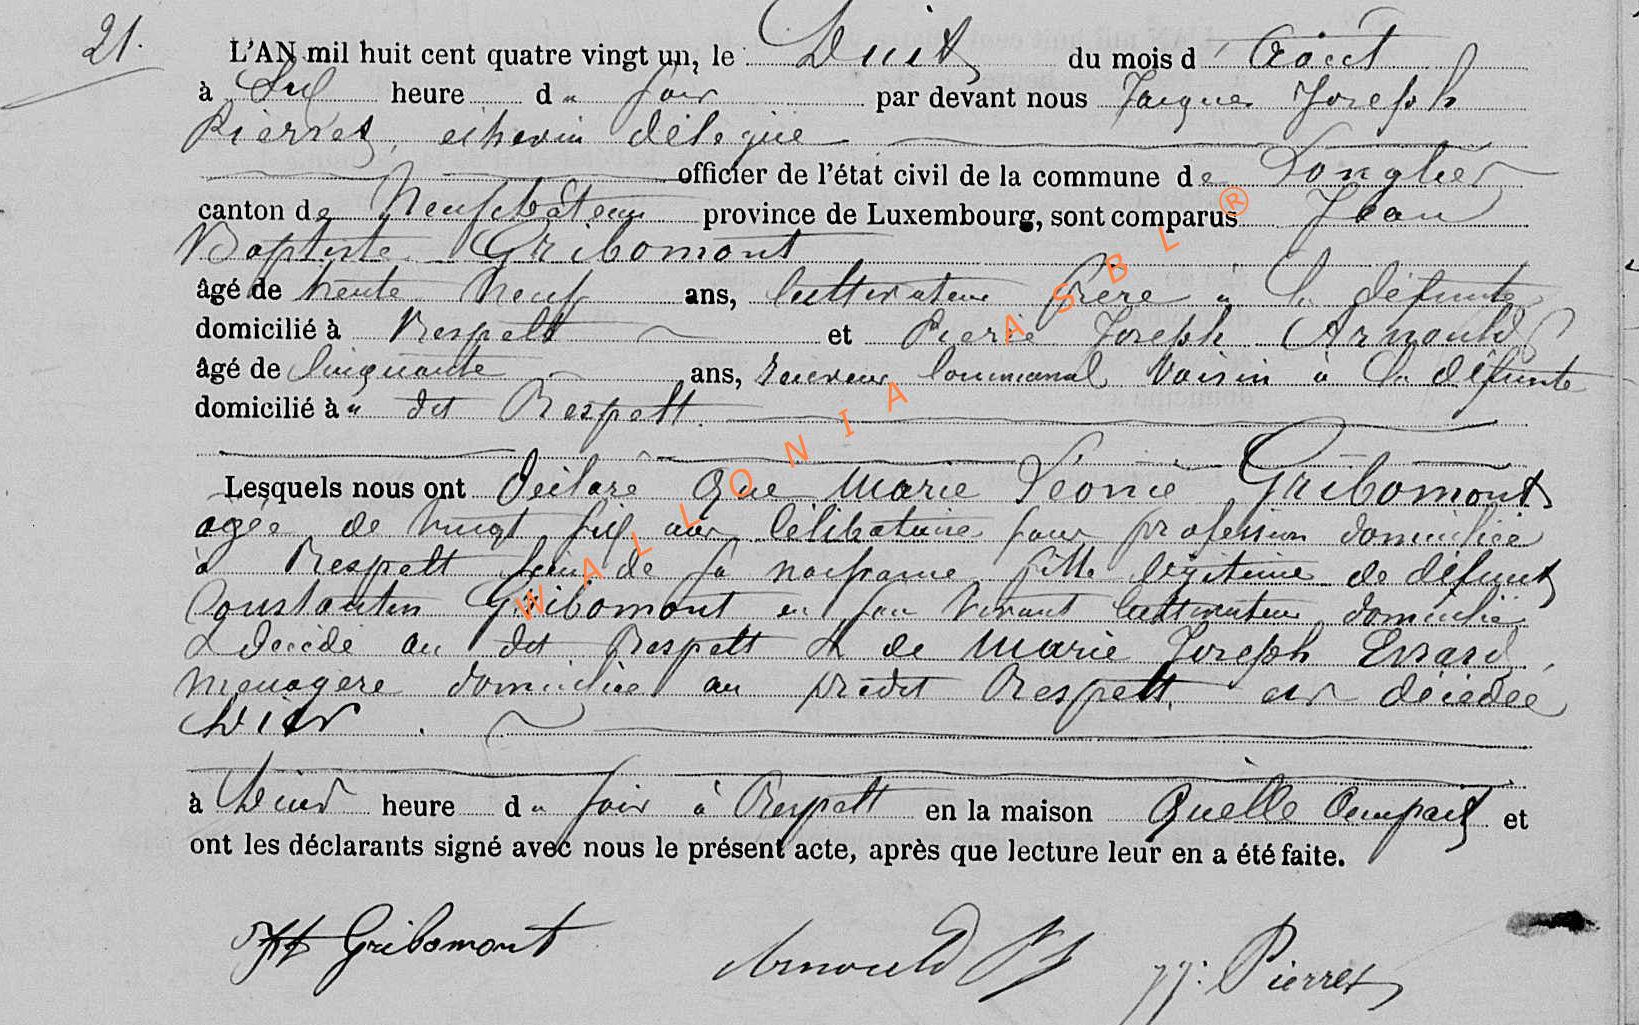 21.
L'AN mil huit cent quatre vingt un, le huit du mois d'Août
à Six heure du soir par devant nous Jacques Joseph
Pierret, echevin délégué
officier de l'état civil de la commune de Longlier
canton de Neufchâteau province de Luxembourg, sont comparus Jean
Baptiste Gribomont
âgé de trente neuf ans, cultivateur frère à la défunte
domicilié à Respelt et Pierre Joseph Arnould
âgé de cinquante ans, receveur communal Voisin à la défunte
domicilié à u dit Respelt.
Lesquels nous ont déclaré que Marie Léonie Gribomont
agée de vingt six ans célibataire sans profession domiciliée
à Respelt lieu de sa naissance fille légitime de défunt
Constantin Gribomont en son vivant cultivateur domicilié
& décédé au dit Respelt & de Marie Joseph Evrard,
menagère domiciliée au prédit Respelt, est décédée
hier.
à heure du soir à Respelt en la maison quelle occupait et
ont les déclarants signé avec nous le présent acte, après que lecture leur en a été faite.
Gribomont Arnould PJ JJ. Pierret
WALLONIA ASBL ®